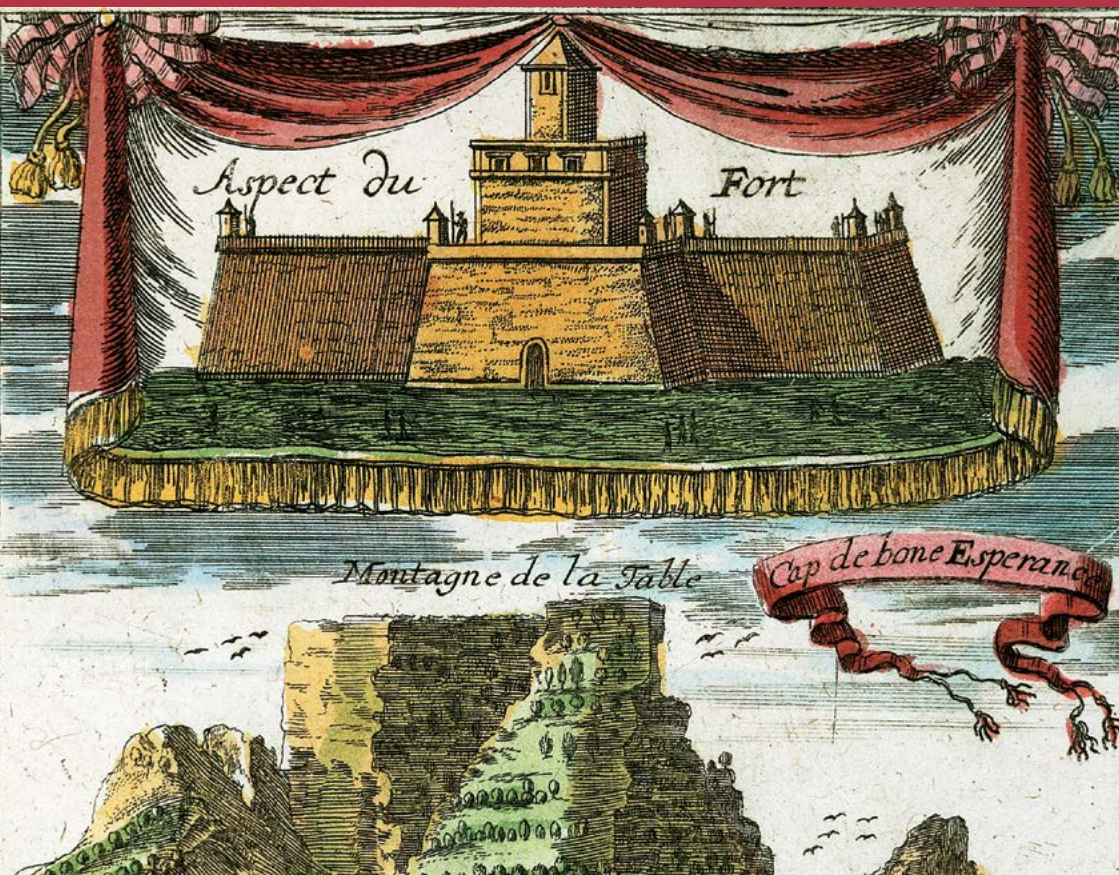 Aspect du Fort
Montagne de la Table
Cap de bone Esperance